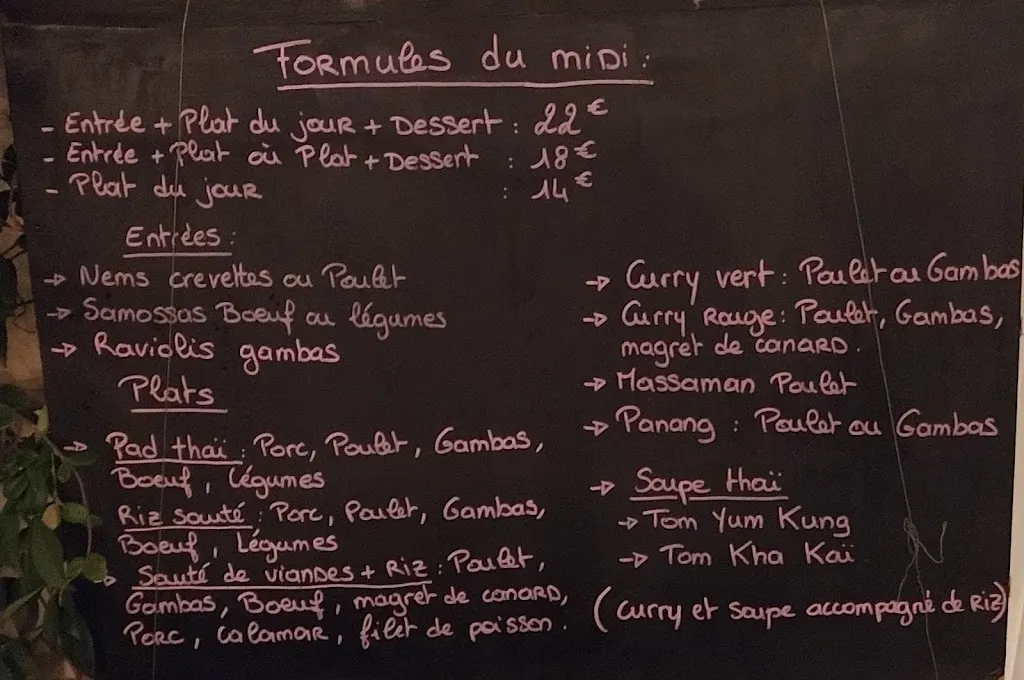 Formules du midi :
- Entrée + Plat du jour + Dessert : 22€
- Entrée + Plat où Plat + Dessert : 18€
- Plat du jour : 14€
Entrées :
→ Nems crevettes ou Poulet
→ Samossas Boeuf ou légumes
→ Raviolis gambas
Plats
→ Pad thaï : Porc, Poulet, Gambas,
Boeuf, Légumes
Riz sauté : Porc, Poulet, Gambas,
Boeuf, Légumes
→ Sauté de viandes + Riz : Poulet,
Gambas, Boeuf, magret de canard,
Porc, Calamar, filet de poisson.
→ Curry vert : Poulet ou Gambas
→ Curry Rouge : Poulet, Gambas,
magret de canard.
→ Massaman Poulet
→ Panang : Poulet ou Gambas
→ Soupe thaï
→ Tom Yum Kung
→ Tom Kha Kaï
(Curry et soupe accompagné de Riz)